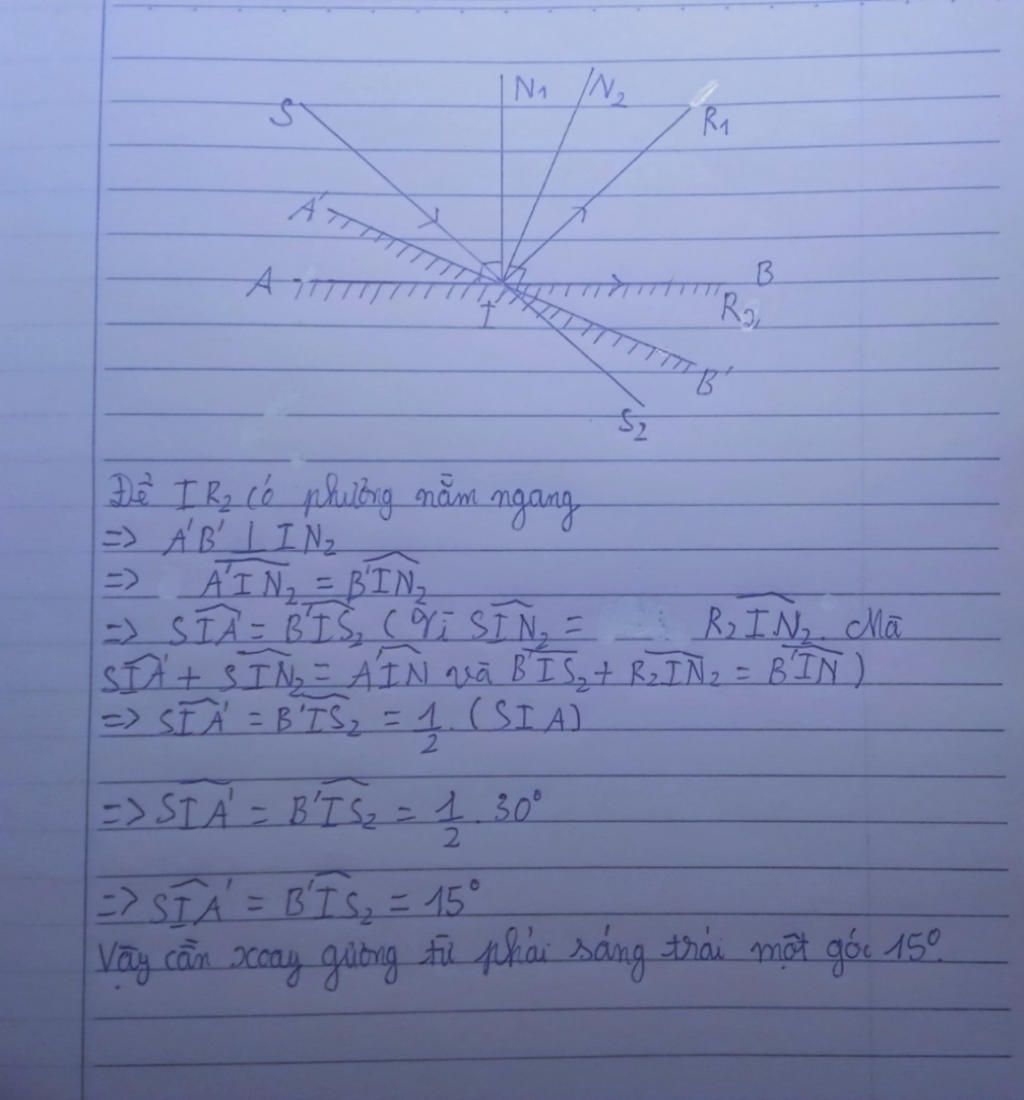 S
N1
N2
R1
A'
A
B
I
R2
B'
S2
Để IR2 có phương nằm ngang
=> A'B' ⊥ IN2
=> A'IN2 = B'IN2
=> SIA' = B'IS2 (Vì SIN2 = R2IN2. Mà
SIA' + SIN2 = A'IN và B'IS2 + R2IN2 = B'IN)
=> SIA' = B'IS2 = 1/2 . (SIA)
=> SIA' = B'IS2 = 1/2 . 30°
=> SIA' = B'IS2 = 15°
Vậy cần xoay gương từ phải sáng trái một góc 15°.